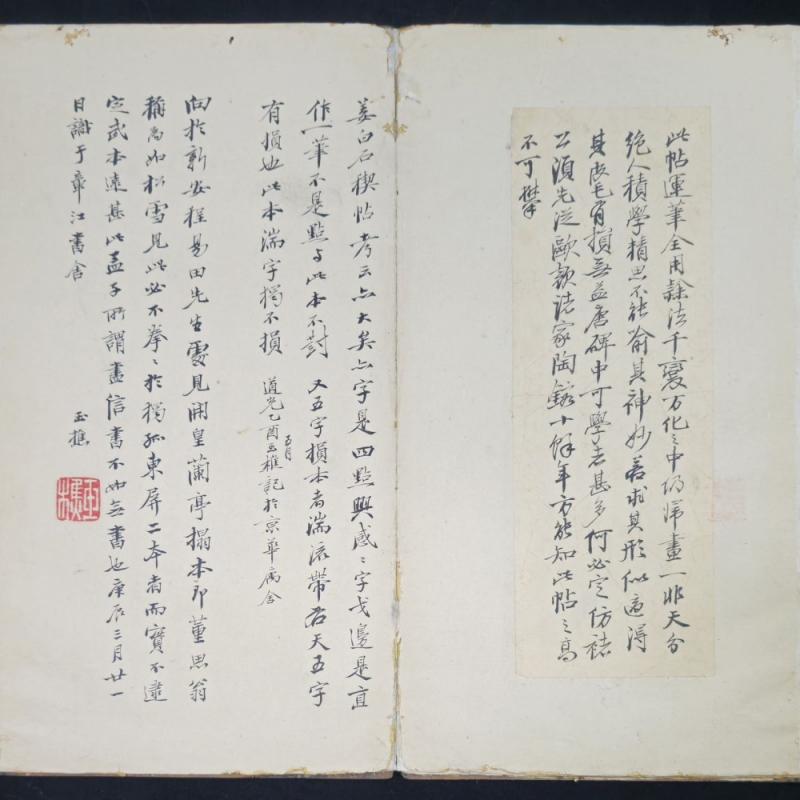 此帖運筆全用隸法千變万化之中仍歸畫一非天分
絕人積學精思不能窺其神妙若求其形似適得
其皮毛有損無益唐碑中可學者甚多何必定仿褚
公須先從歐顏諸家陶鎔十餘年方能知此帖之高
不可攀
姜白石禊帖考云亦大矣亦字是四點興感之字戈邊是直
作一筆不是點与此本不對 又五字損本者湍流帶右天五字
有損也此本湍字獨不損 道光乙酉五月玉樵記於京華病舍
向於新安程易田先生處見開皇蘭亭搨本即董思翁
稱為如松雪見此必不拳〻於獨孤東屏二本者而實不逮
定武本遠甚此孟子所謂盡信書不如無書也庚辰三月廿一
日識于章江書舍
玉樵
玉樵